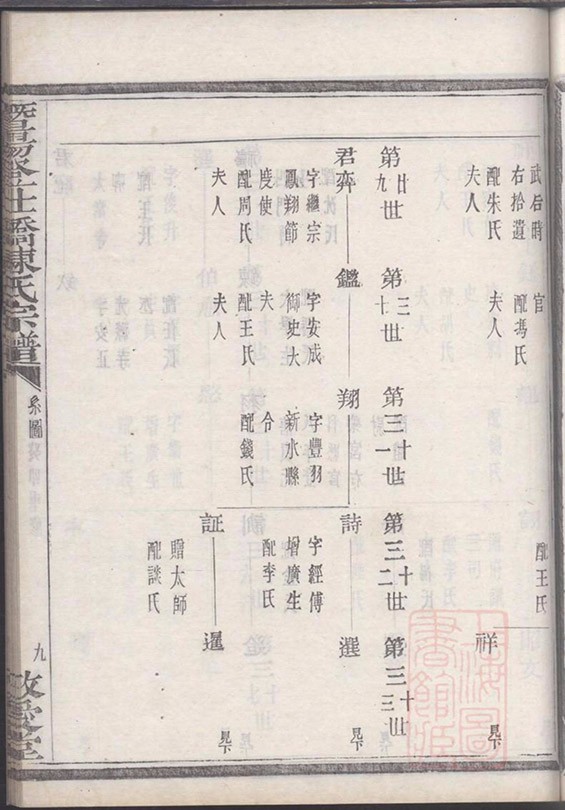 武后時
右拾遺
配朱氏
夫人
官
配馮氏
夫人
配王氏
祥
見下
第廿九世
第三十世
第三十一世
第三十二世
第三十三世
君弈
字繼宗
鳳翔節
度使
配周氏
夫人
鑑
字安成
御史大
夫
配王氏
夫人
翔
字豐羽
新水縣
令
配錢氏
詩
字經傅
增廣生
配李氏
選
見下
証
贈太師
配談氏
暹
見下
暨陽登仕橋陳氏宗譜
系圖
九
上海圖書館藏